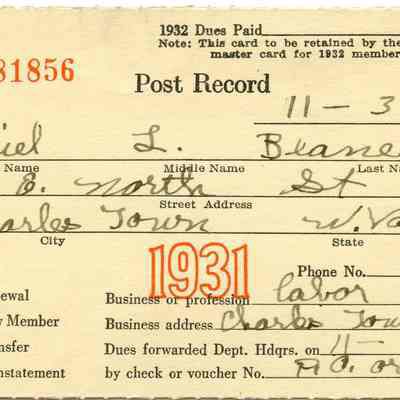 1932 Dues Paid
Note: This card to be retained by the
master card for 1932 member
81856
Post Record
11 - 3
iel L. Beane
Name Middle Name Last Na
E. North St
Street Address
arles Town W. Va
City State
1931
Phone No.
ewal Business or profession labor
Member Business address Charles Tow
nsfer Dues forwarded Dept. Hdqrs. on 11-
nstatement by check or voucher No.